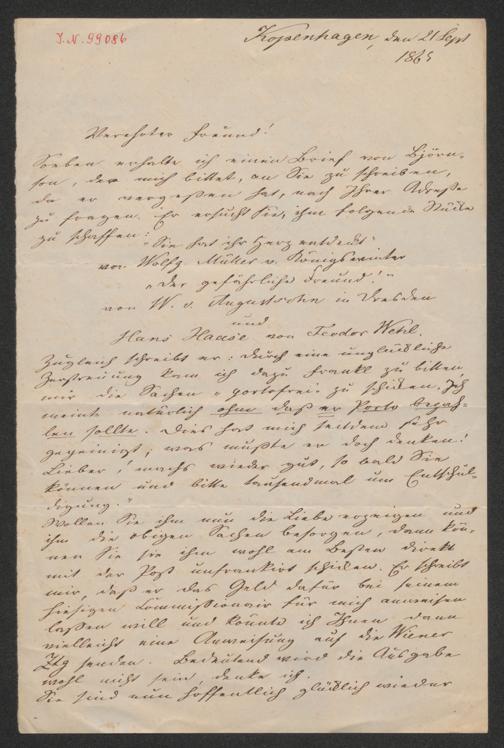 J.N. 99086
Kopenhagen, den 21 Sept
1865
Verehrter Freund!
Soeben erhalte ich einen Brief von Björn-
son, der mich bittet, an Sie zu schreiben,
da er vergeßen hat, nach Ihrer Adreße
zu fragen. Er ersucht Sie, ihm folgende Stücke
zu schaffen:
"Sie hat ihr Herz entdeckt"
von Wolfg. Müller v. Königswinter
"Der gefährliche Freund!"
von W. v. in Dresden
und
Hans Haase von Feodor Wehl.
Zugleich schreibt er: durch eine unglückliche
Zerstreuung kam ich dazu Frankl zu bitten,
mir die Sachen "portofrei" zu schicken. Ich
meinte natürlich ohne daß er Porto bezah-
len sollte. Dies hat mich seitdem sehr
gepeinigt; was mußte er doch denken!
Lieber! machs wieder gut, so bald Sie
können und bitte tausendmal um Entschul-
digung."
Wollen Sie ihm nun die Liebe erzeigen und
ihm die obigen Sachen besorgen, dann kön-
nen Sie sie ihm wohl am Besten direkt
mit der Post unfrankirt schicken. Er schreibt
mir, daß er das Geld dafür bei seinem
hiesigen Commissionair für mich anweisen
laßen will und könnte ich Ihnen dann
vielleicht eine Anweisung auf die Wiener
Ztg senden. Bedeutend wird die Ausgabe
wohl nicht sein, denke ich.
Sie sind nun hoffentlich glücklich wieder